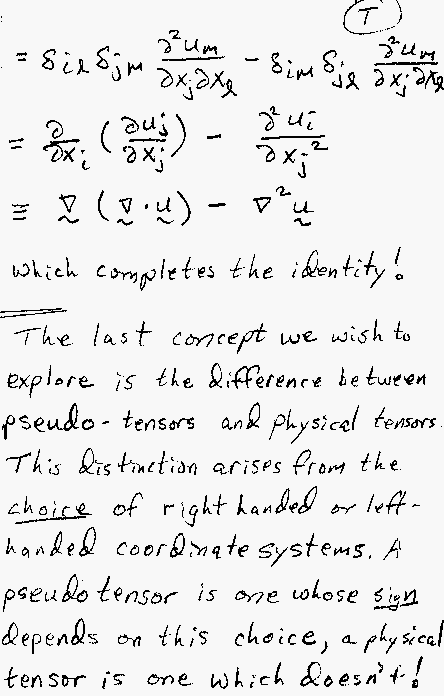 T
= δ_il δ_jm ∂²u_m/∂x_j∂x_l - δ_im δ_jl ∂²u_m/∂x_j∂x_l
= ∂/∂x_i (∂u_j/∂x_j) - ∂²u_i/∂x_j²
≡ ∇ (∇·u) - ∇²u
which completes the identity!
The last concept we wish to
explore is the difference between
pseudo-tensors and physical tensors.
This distinction arises from the
choice of right handed or left-
handed coordinate systems. A
pseudotensor is one whose sign
depends on this choice, a physical
tensor is one which doesn't!